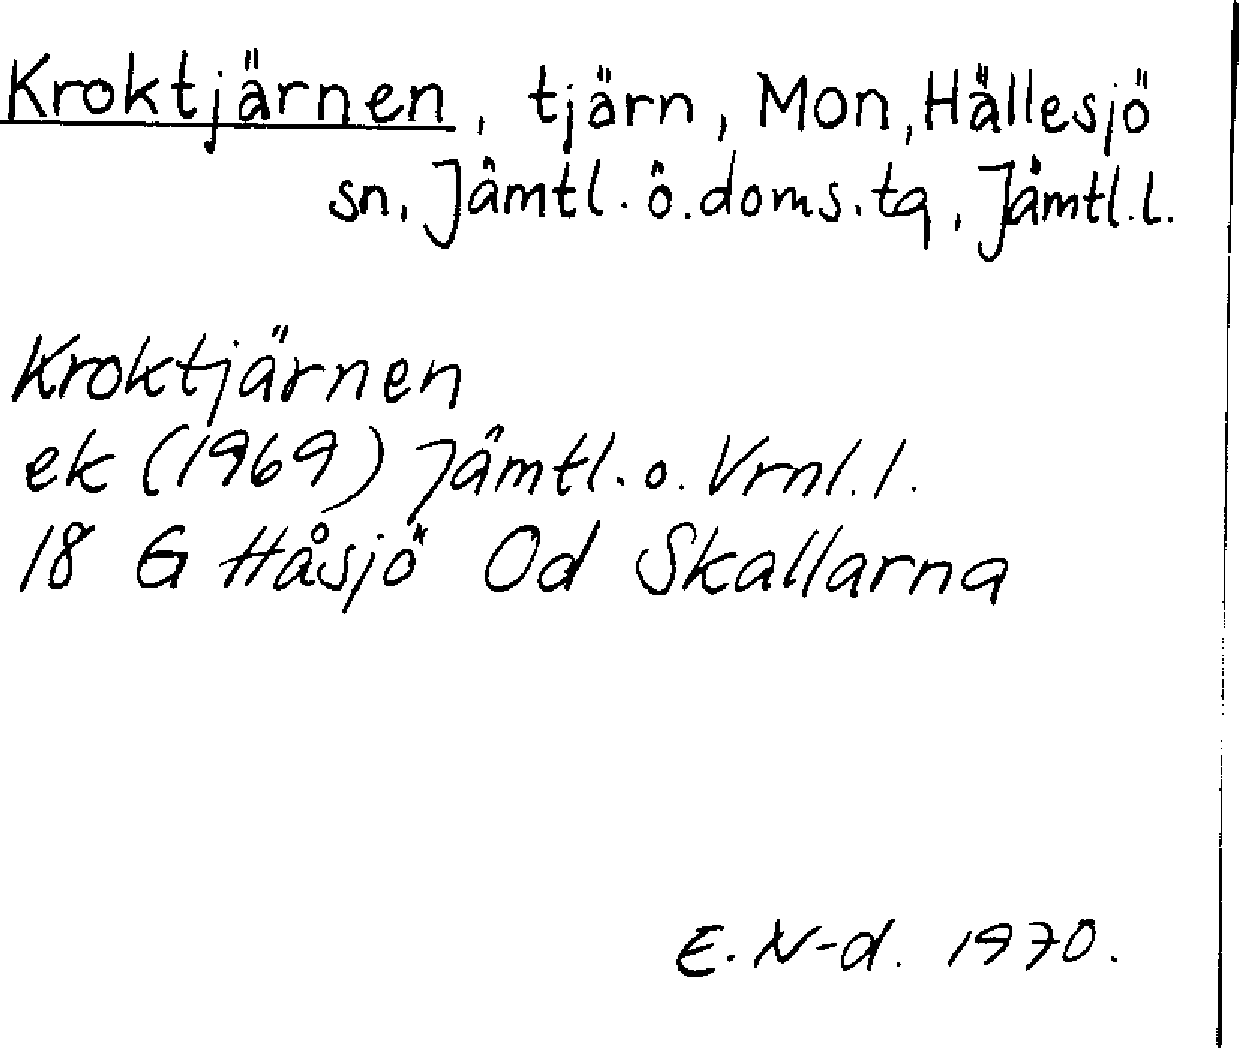 Kroktjärnen, tjärn, Mon, Hällesjö
sn. Jämtl. ö. doms. tg, Jämtl. l.
Kroktjärnen
ek (1969) Jämtl. o. Vrnl. l.
18 G Håsjö Od Skallarna
E. N-d. 1970.